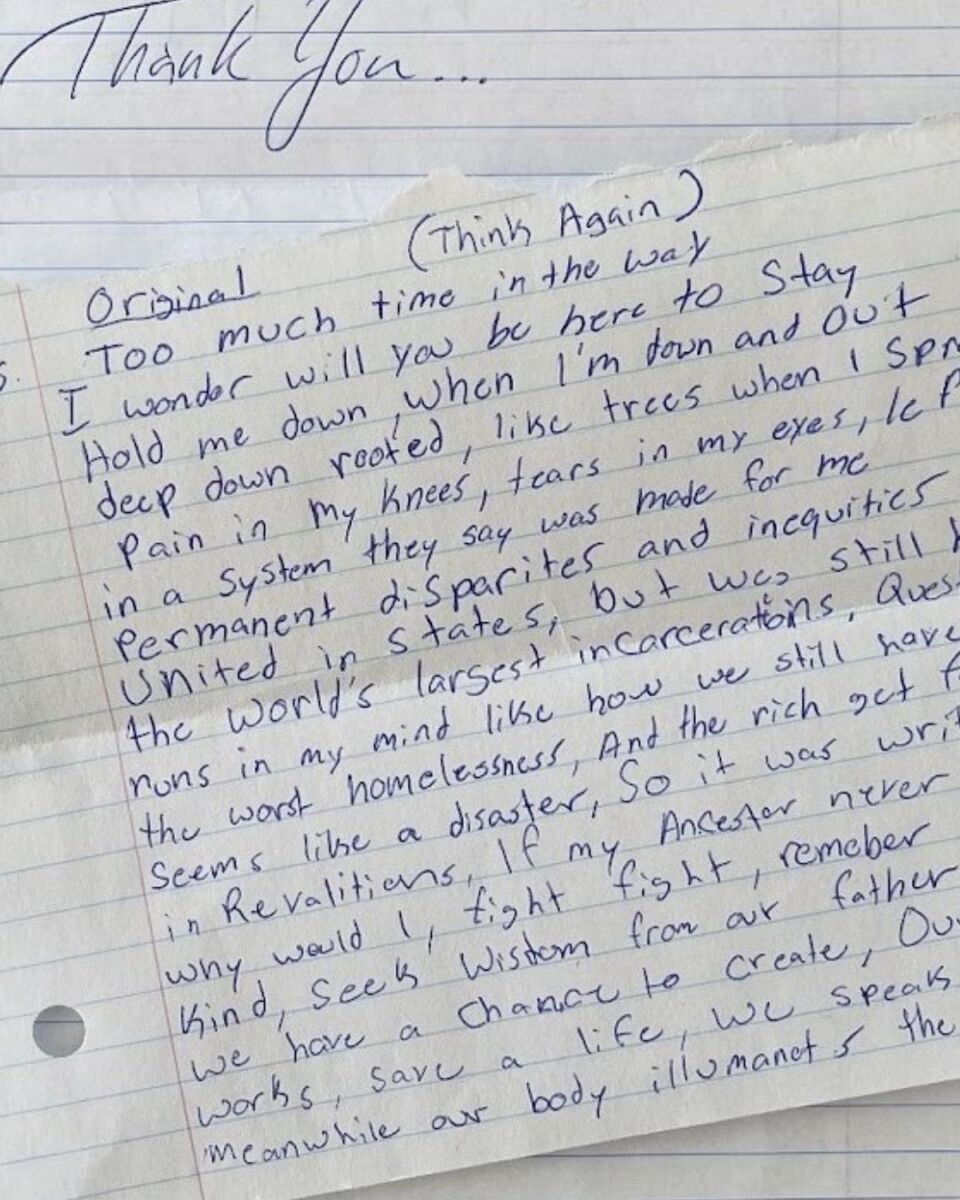 Thank You...
(Think Again)
Original
Too much time in the way
I wonder will you be here to Stay
Hold me down, when I'm down and Out
deep down rooted, like trees when I
Pain in my knees, tears in my eyes,
in a System they say was made for me
Permanent disparites and inequities
United in States, but was still
the world's largest incarcerations,
runs in my mind like how we still have
the worst homelessness, And the rich get
Seems like a disaster, So it was
in Revalitians, If my Ancestor never
why would I, fight fight, remeber
Kind, Seek Wisdom from our father
we have a Chance to create,
works, save a life, we speak
meanwhile our body illumanets the